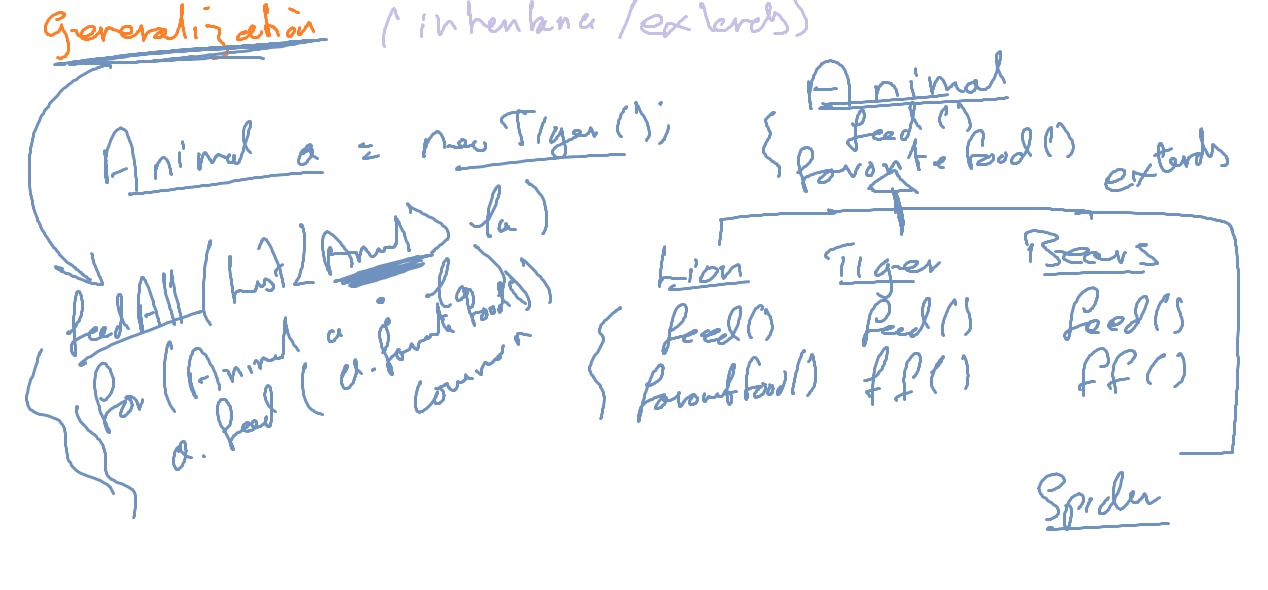 Generalization (inheritance/extends)
Animal a = new Tiger();
feedAll(List<Animal> la)
for (Animal a : la)
a.feed(a.favorite food())
common
Animal
feed()
favorite food()
extends
Lion Tiger Bears
feed() feed() feed()
favorite food() ff() ff()
Spider